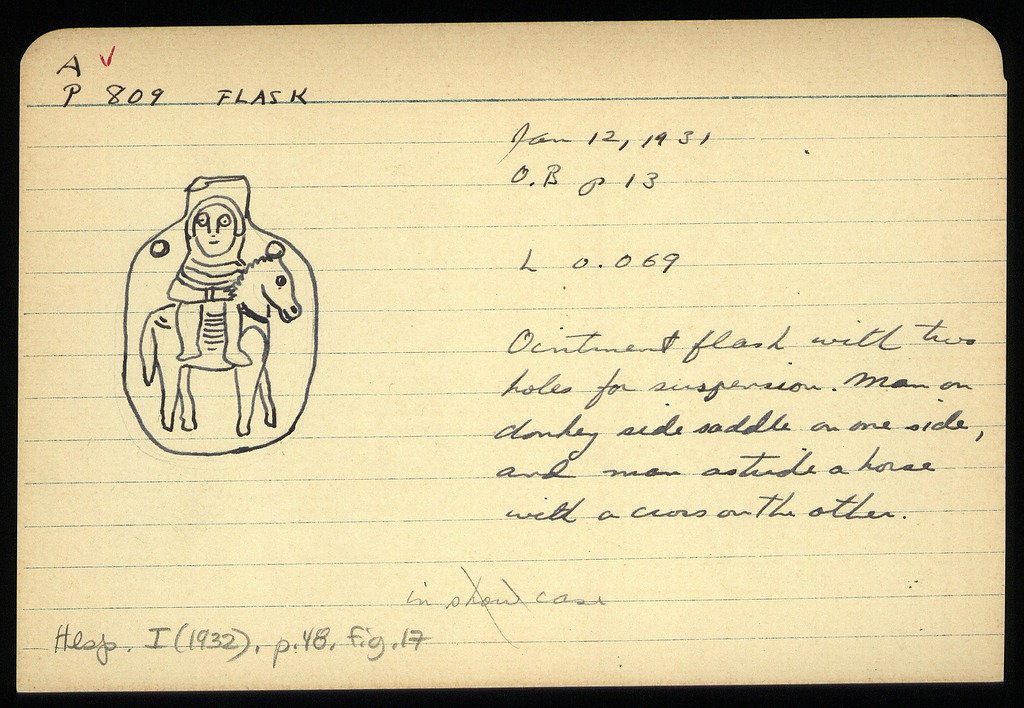 A ✓
P 809 FLASK
Jan 12, 1931
O.B p 13
L 0.069
Ointment flask with two
holes for suspension. Man on
donkey side saddle on one side,
and man astride a horse
with a cross on the other.
in show case
Hesp. I (1932), p.48, fig.17